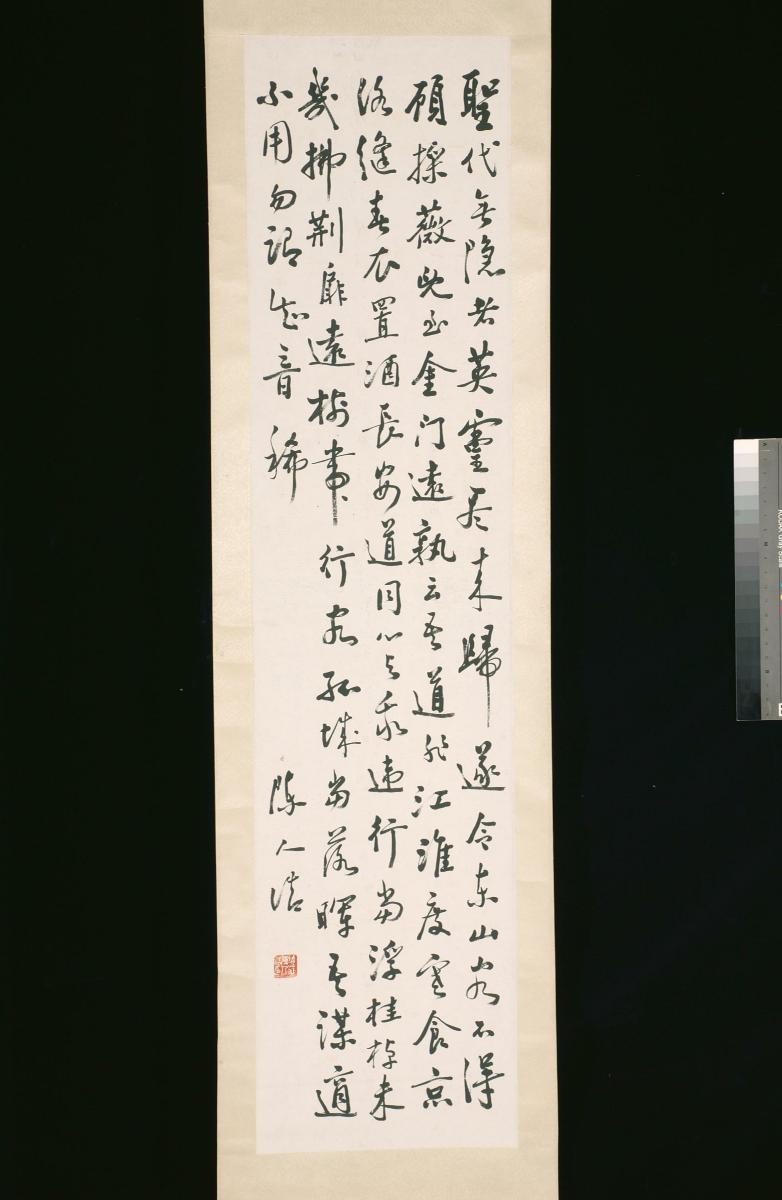 聖代無隱者英靈盡來歸遂令東山客不得
顧採薇既至金門遠孰云吾道非江淮度寒食京
洛縫春衣置酒長安道同心與我違行當浮桂棹未
幾拂荊扉遠樹帶行客孤城當落暉吾謀適
不用勿謂知音稀
陳人浩